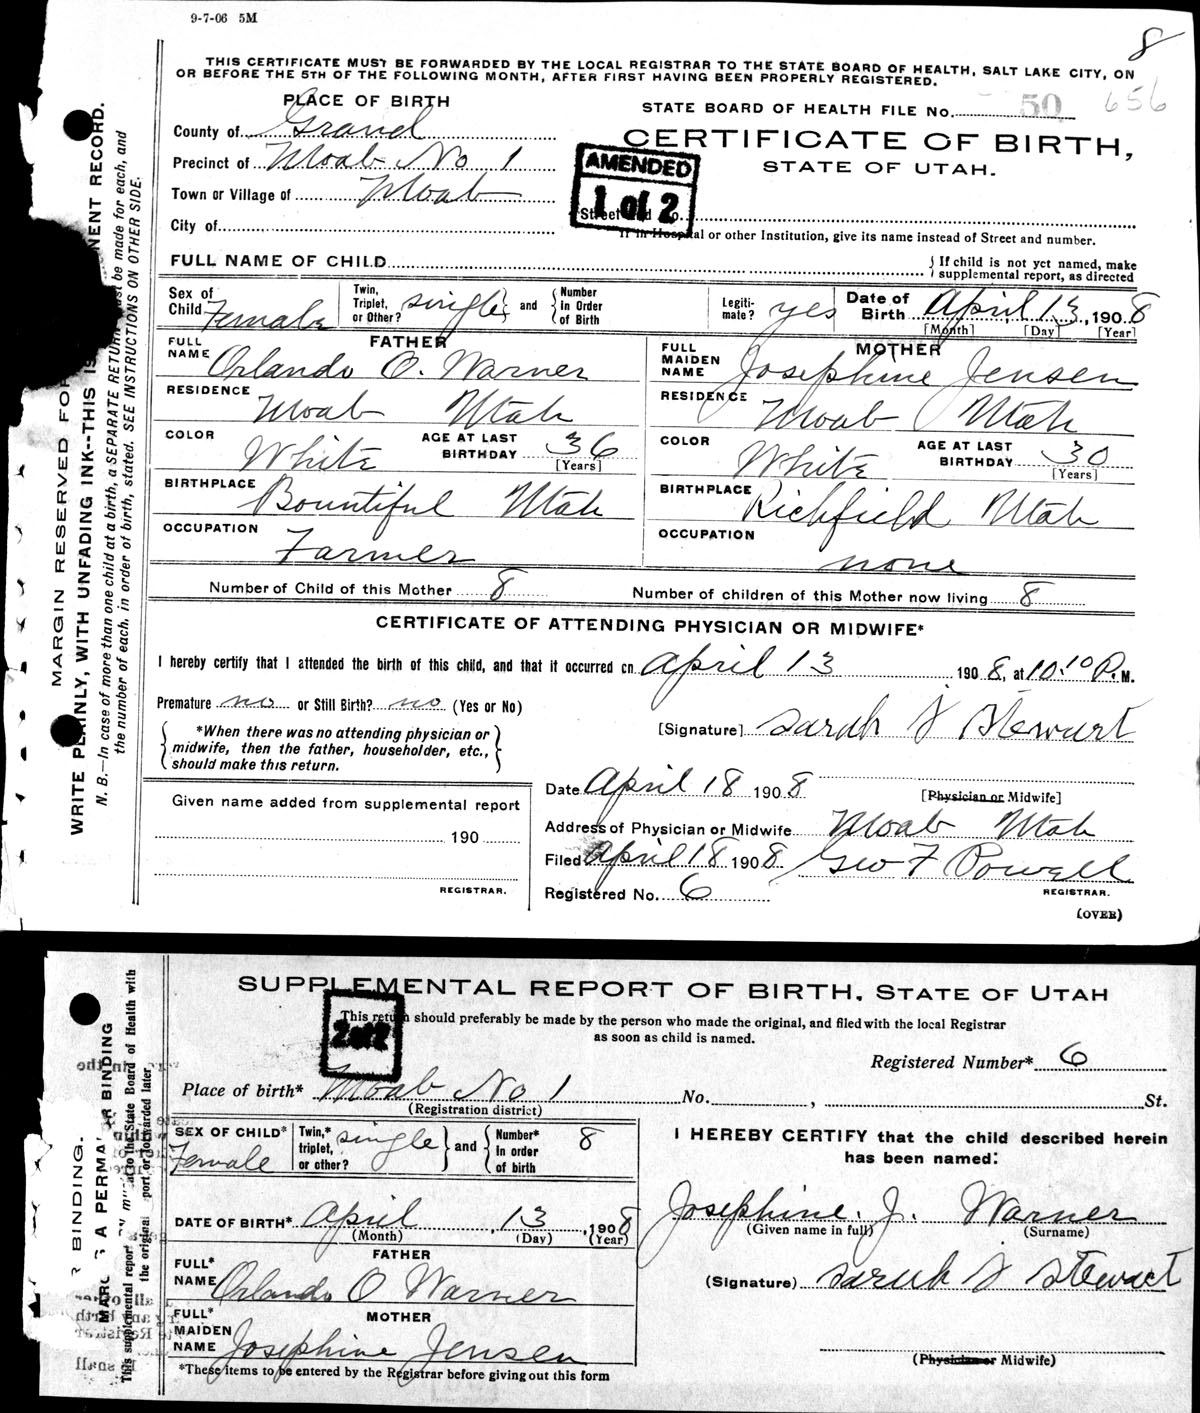 9-7-06 5M
8
THIS CERTIFICATE MUST BE FORWARDED BY THE LOCAL REGISTRAR TO THE STATE BOARD OF HEALTH, SALT LAKE CITY, ON
OR BEFORE THE 5TH OF THE FOLLOWING MONTH, AFTER FIRST HAVING BEEN PROPERLY REGISTERED.
PLACE OF BIRTH
STATE BOARD OF HEALTH FILE No. 50 656
County of Grand
CERTIFICATE OF BIRTH,
Precinct of Moab No 1
STATE OF UTAH.
AMENDED
1 of 2
Town or Village of Moab
Street and No.
City of
If in Hospital or other Institution, give its name instead of Street and number.
FULL NAME OF CHILD
{If child is not yet named, make supplemental report, as directed
Sex of Child Female
Twin, Triplet, or Other? single } and { Number in Order of Birth
Legiti-mate? yes
Date of Birth April 13, 1908
[Month] [Day] [Year]
FATHER
MOTHER
FULL NAME Orlando O. Warner
FULL MAIDEN NAME Josephine Jensen
RESIDENCE Moab Utah
RESIDENCE Moab Utah
COLOR White AGE AT LAST BIRTHDAY 36 [Years]
COLOR White AGE AT LAST BIRTHDAY 30 [Years]
BIRTHPLACE Bountiful Utah
BIRTHPLACE Richfield Utah
OCCUPATION Farmer
OCCUPATION none
Number of Child of this Mother 8 Number of children of this Mother now living 8
CERTIFICATE OF ATTENDING PHYSICIAN OR MIDWIFE*
I hereby certify that I attended the birth of this child, and that it occurred on April 13 1908, at 10:10 P.M.
Premature no or Still Birth? no (Yes or No)
[Signature] Sarah J Stewart
{*When there was no attending physician or
midwife, then the father, householder, etc.,
should make this return.}
Date April 18 1908
[Physician or Midwife]
Given name added from supplemental report
Address of Physician or Midwife Moab Utah
190
Filed April 18 1908 Geo F Powell
REGISTRAR.
Registered No. 6
REGISTRAR.
(OVER)
MARGIN RESERVED FOR
WRITE PLAINLY, WITH UNFADING INK--THIS IS NENT RECORD.
N. B.—In case of more than one child at a birth, a SEPARATE RETURN must be made for each, and
the number of each, in order of birth, stated. SEE INSTRUCTIONS ON OTHER SIDE.
SUPPLEMENTAL REPORT OF BIRTH, STATE OF UTAH
2 of 2
This return should preferably be made by the person who made the original, and filed with the local Registrar
as soon as child is named.
Registered Number* 6
Place of birth* Moab No 1 No. , St.
(Registration district)
SEX OF CHILD* Female
Twin,* triplet, or other? single } and { Number* in order of birth 8
I HEREBY CERTIFY that the child described herein
has been named:
Josephine. J. Warner
(Given name in full) (Surname)
DATE OF BIRTH* April, 13, 1908
(Month) (Day) (Year)
FATHER
FULL* NAME Orlando O Warner
(Signature) Sarah J Stewart
MOTHER
FULL* MAIDEN NAME Josephine Jensen
(Physician or Midwife)
*These items to be entered by the Registrar before giving out this form